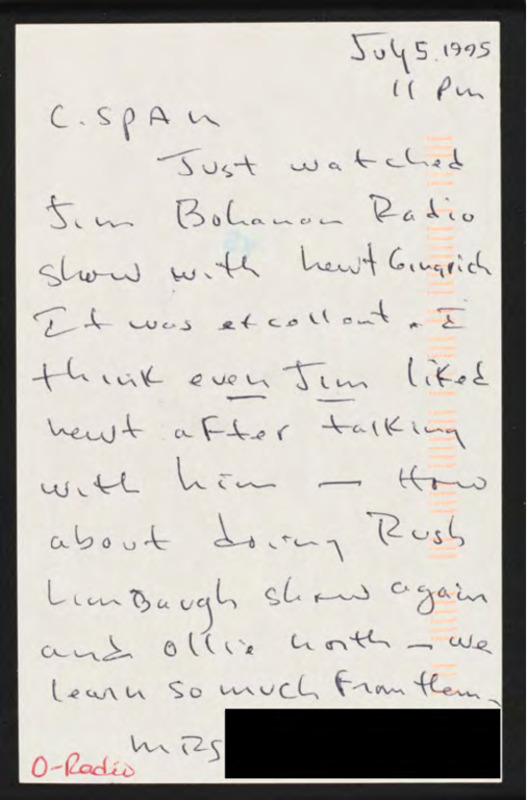 July 5. 1995
11 Pm
C. SPAN
Just watched
Jim Bohanon Radio
show with Newt Gingrich
It was excellant. I
think even Jim liked
Newt after talking
with him — How
about doing Rush
LimBaugh show again
and Ollie North — we
learn so much From them.
MRS
O-Radio